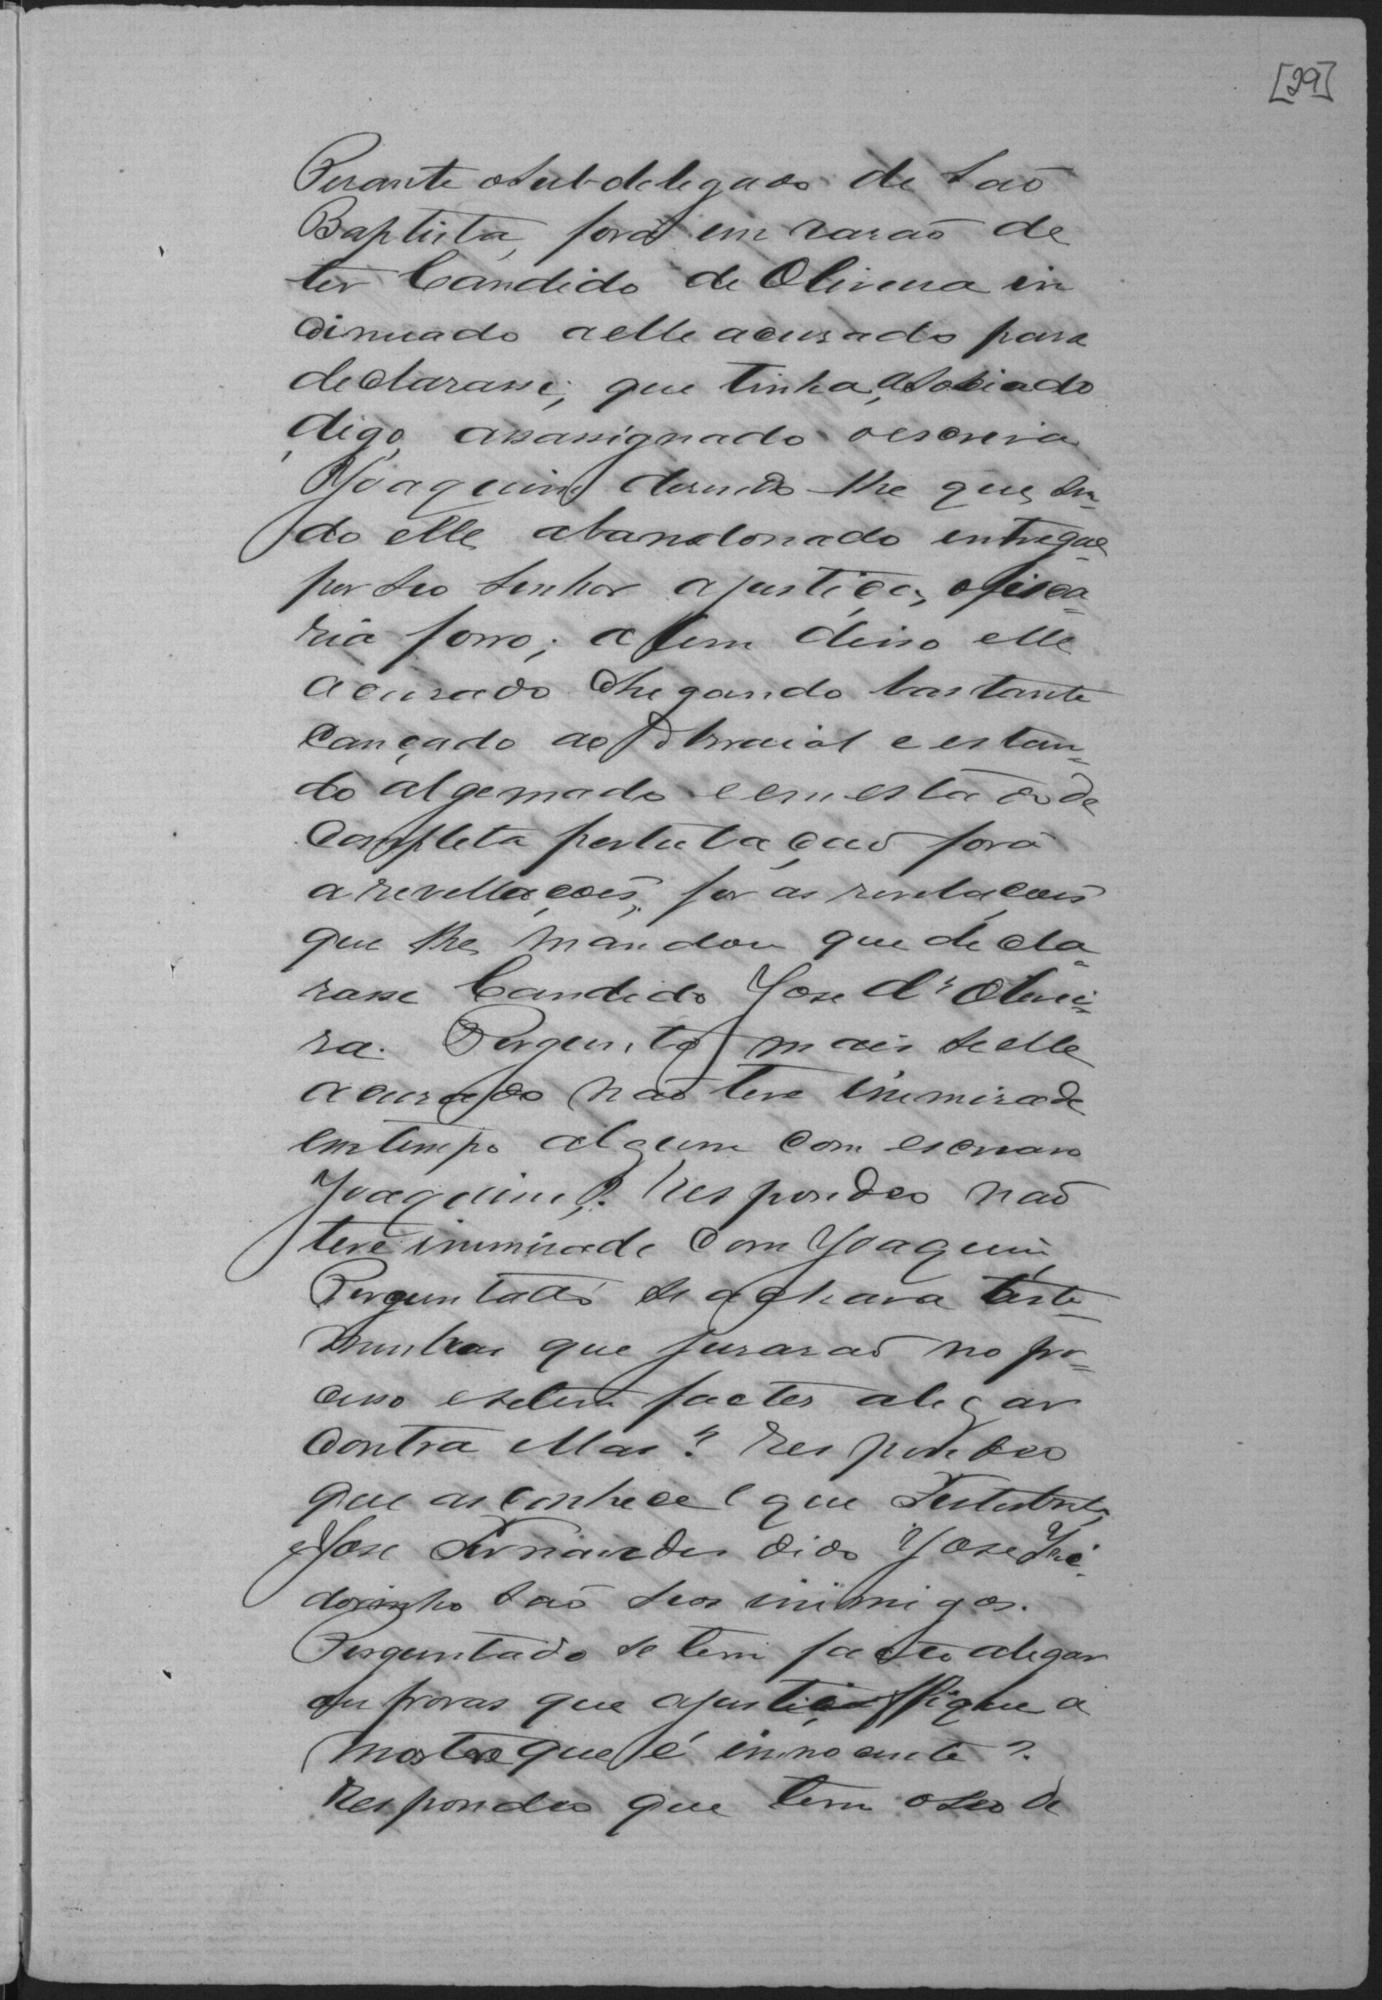 [29]
Perante osubdelegado de Saõ
Baptista, fora em rasaõ de
ter Candido de Oliveira in
cinuado aelle acusado para
declarasse, que tinha,
digo, assassignado oescravo
Joaquim disendo-lhe que, sen-
do elle abandonado entregue
por seo Senhor ajustiça, ofica-
ria forro; alem disso elle
acusado chegando bastante
cançado ao Arraial e estan-
do algemado e em estado de
completa pertubaçaõ fora
a revellaçoẽs, fes as revelaçoẽs
que lhe mandou que decla-
rasse Candido Jose d'Olivei-
ra. Pergunto mais se elle
acusado naõ teve inimisade
em tempo algum com escravo
Joaquim? Respondeo naõ
teve inimisade com Joaquim
Perguntado se achava teste-
munhas que juraraõ no pro-
cesso esetem factos alegar
contra ellas? Respondeo
que as conhece e que
e Jose Fernandes dido Jose
dorinho saõ seos inimigos.
Perguntado se tem facto alegar
ou provas que ajustifique a
mostre que é innocente?
Respondeo que tem o seo de